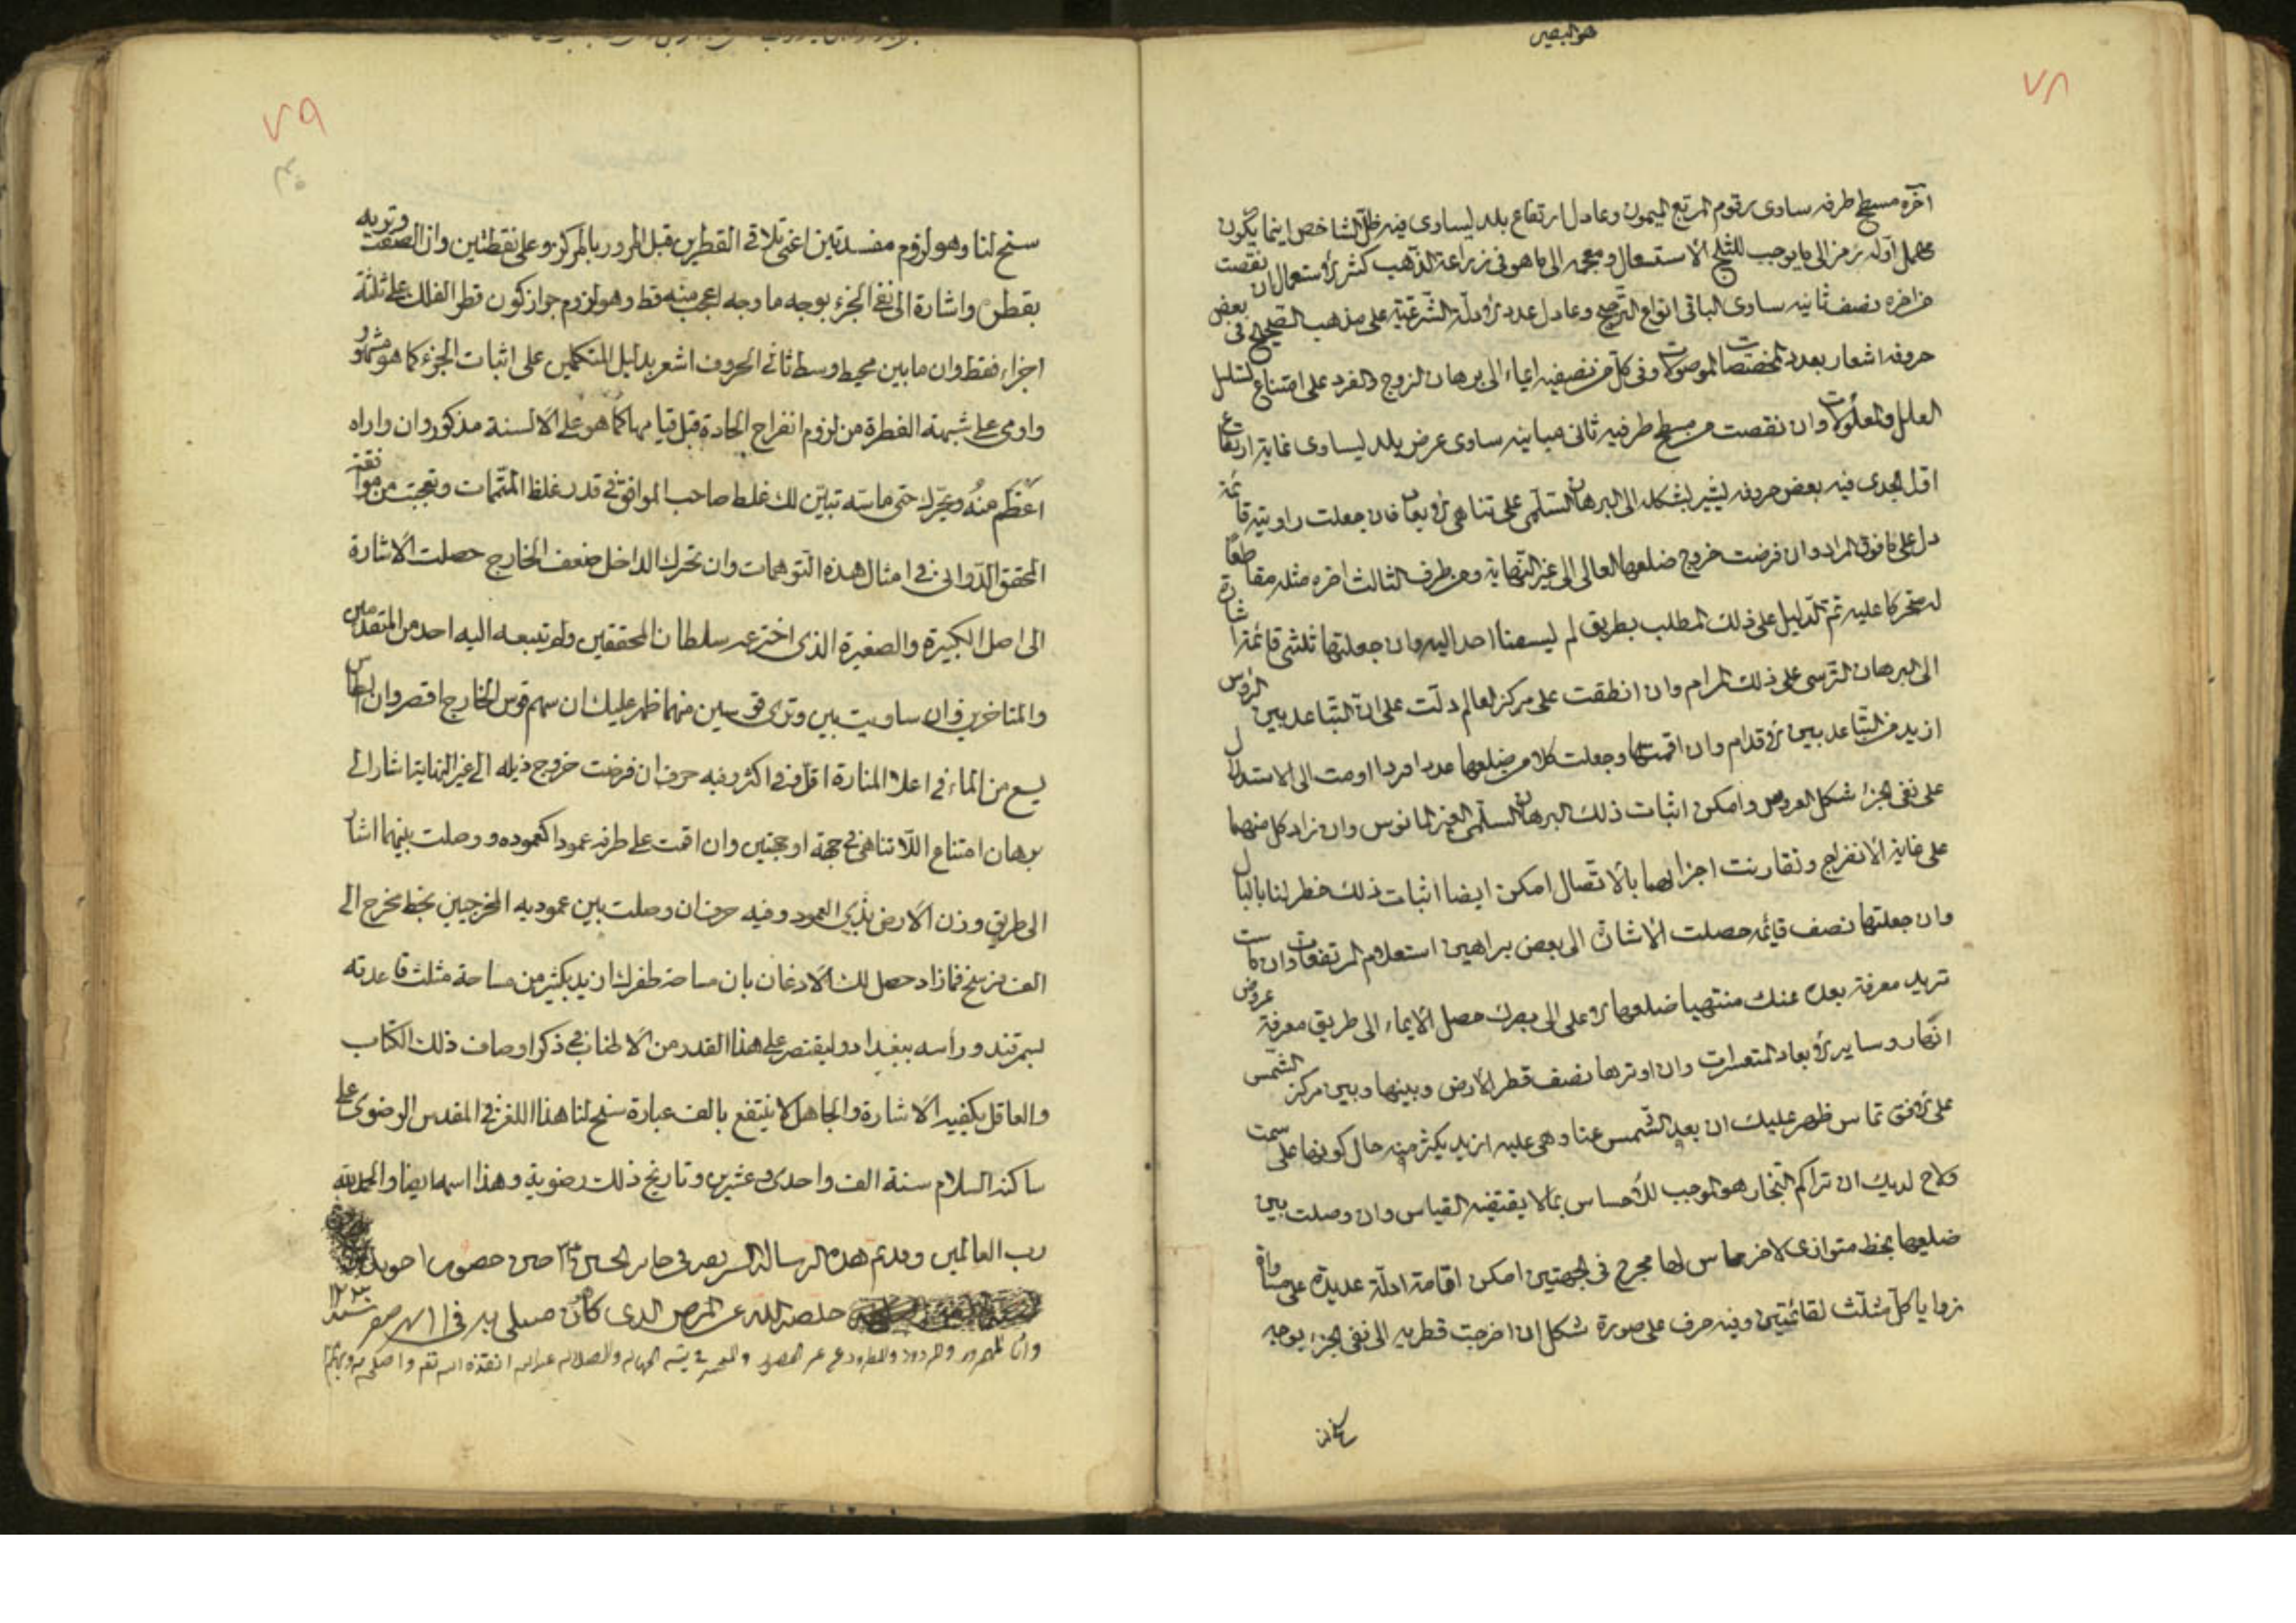 هو البصير
٧٨
آخره مسطح طرفه ساوى رقوم المربع الميمون وعادل ارتفاع بلد ليساوى فيه ظل الشاخص اينما يكون
مهمل اوله رمز الى ما يوجب للثلج الاستعمال ومعجمه الى ما هو فى زراعة الذهب كثير الاستعمال ان نقصت
من اخره نصف ثانيه ساوى الباقى انواع الترجيح وعادل عدد الادلة الشرعية على مذهب الصحيح فى بعض
حروفه اشعار بعدد المختصات الموصولات وفى كل من نصفيه ايماء الى برهان الزوج والفرد على امتناع تسلسل
العلل والمعلولات وان نقصت من مسطح طرفيه ثانى مباينه ساوى عرض بلد ليساوى غاية ارتفاع
اقل الجدى فيه بعض حروفه يشير بشكله الى البرهان السلمى على تناهى الابعاد فان جعلت زاويته قائمة
دل على ما فوق المراد وان فرضت خروج ضلعها العالى الى غير النهاية ومن طرف الثالث اخره مثله مقاطعا
له متحركا عليه تم الدليل على ذلك المطلب بطريق لم يسبقنا احد اليه وان جعلتها ثلثى قائمة اشارة
الى البرهان الترسى على ذلك المرام وان انطقت على مركز العالم دلت على ان التباعد بين الرؤس
ازيد من التباعد بين الاقدام وان اقمتها وجعلت كلا من ضلعها عددا فردا اومت الى الاستدلال
على نفى الجزء شكل العروس وامكن اثبات ذلك البرهان السلمى الغير المانوس وان زاد كل منهما
على غاية الانفراج وتقارنت اجزائهما بالاتصال امكن ايضا اثبات ذلك خطر لنا بالبال
وان جعلتها نصف قائمه حصلت الاشارة الى بعض براهين استعلام المرتفعات وان كانت
تريد معرفة بعده عنك منتهيا ضلعها الاعلى الى بصرك حصل الايماء الى طريق معرفة عروض
الانهار وساير الابعاد المتعسرات وان اوترها نصف قطر الارض وبينها وبين مركز الشمس
على الافق تماس ظهر عليك ان بعد الشمس عنا وهى عليه ازيد بكثير منه حال كونها على سمت
ولاح لديك ان تراكم البخار هو الموجب للاحساس بما لا يقتضيه القياس وان وصلت بين
ضلعيها بخط متوازى لاخر مماس لها مخرج فى الجهتين امكن اقامة ادلة عديدة على مساواة
زوايا كل مثلث لقائمتين وفيه حرف على صورة شكل ان اخرجت قطريه الى نفى الجزء بوجه
سنح لنا
٧٩
سنح لنا وهو لزوم مفسدتين اعنى تلاقى القطرين قبل المرور بالمركز وعلى نقطتين وان الصقت وتريه
بقطره واشارة الى نفى الجزء بوجه ما وجه اعجب منه قط وهو لزوم جواز كون قطر الفلك على ثلثة
اجزاء فقط وان مابين محيط وسط ثانى الحروف اشعر بدليل المتكلمين على اثبات الجزء كما هو مشهور
واومى على شبهة الفطرة من لزوم انفراج الحادة قبل قيامها كما هو على الالسنة مذكور وان واراه
اعظم منه وتحرك حتى ماسه تبين لك غلط صاحب المواقف فى قدر غلظ المتممات وتعجبت من موافقة
المحقق الدوانى فى امثال هذه التوهمات وان تحرك الداخل ضعف الخارج حصلت الاشارة
الى اصل الكبيرة والصغيرة الذى اخترعه سلطان المحققين ولم يسبقه اليه احد من المتقدمين
والمتاخرين وان ساويت بين وترى قوسين منهما ظهر عليك ان سهم قوس الخارج اقصر وان الطاس
يسع من الماء فى اعلا المنارة اقل وفى اكثر وفيه حرف ان فرضت خروج ذيله الى غير النهاية اشار الى
برهان امتناع اللاتناهى فى جهة او جهتين وان اقمت على طرفه عمودا كعموده ووصلت بينهما اشار
الى طريق وزن الارض بذى العمود وفيه حرف ان وصلت بين عموديه المخرجين بخط يخرج الى
الف فرسخ فما زاد حصل لك الاذعان بان مساحة ظفرك ازيد بكثير من مساحة مثلث قاعدته
بسمرقند ورأسه ببغداد وليقتصر على هذا القدر من الاطناب فى ذكر اوصاف ذلك الكتاب
والعاقل يكفيه الاشارة والجاهل لا ينتفع بالف عبارة سنح لنا هذا اللغز فى المقدس الرضوى على
ساكنه السلام سنة الف واحدى وعشرين وتاريخ ذلك رضوية وهذا اسمها ايضا والحمد لله
رب العالمين وقد تم هذه الرسالة الشريفه فى حاير الحسين حين حضور
خلصه الله عن المرض الذى كان مبتلى به فى صفر سنه